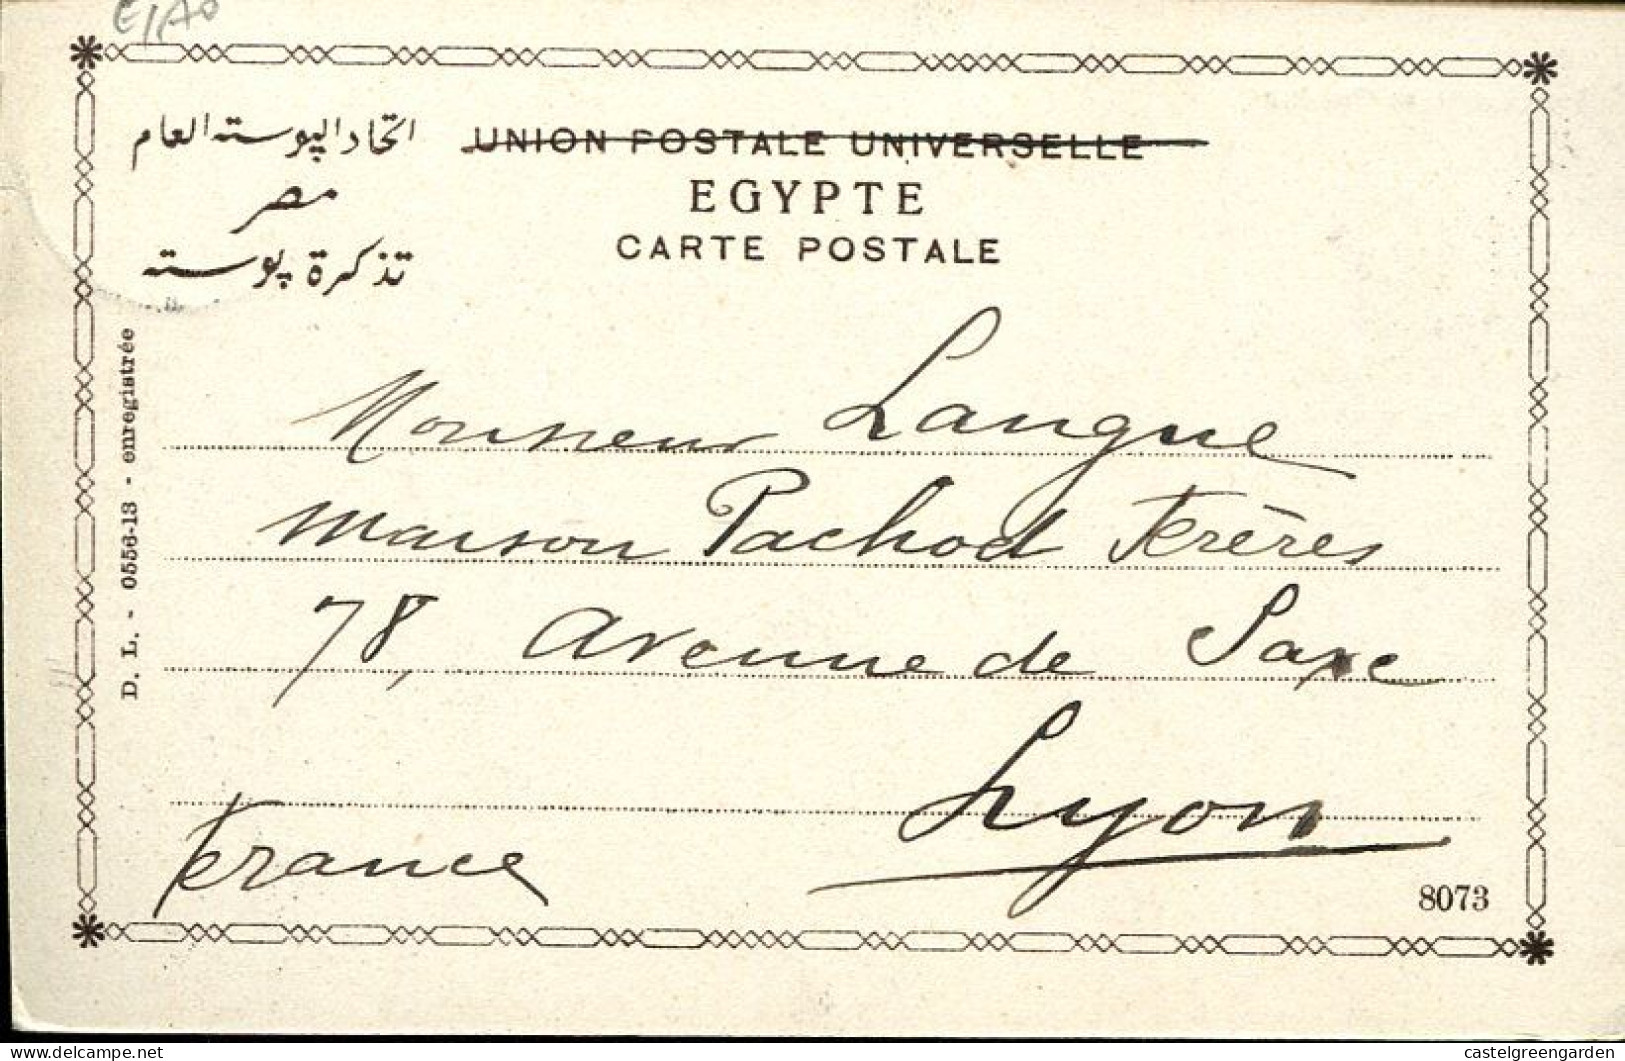 اتحاد البوسته العام
مصر
تذكرة پوسته
UNION POSTALE UNIVERSELLE
EGYPTE
CARTE POSTALE
D. L. - 0556-13 - enregistrée
Monsieur Langue
Maison Pachod Frères
78, Avenue de Saxe
Lyon
France
8073
delcampe.net
castelgreengarden